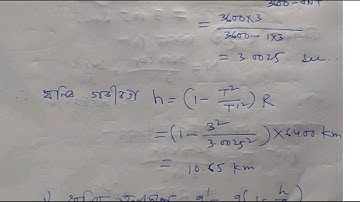 3600-0N1
= 3600×3 / 3600-1×3
= 3.0025 sec
∴ খনির গভীরতা h = (1 - T² / T'²) R
= (1 - 3² / 3.0025²) × 6400 km
= 10.65 km
g' = g(1 - h